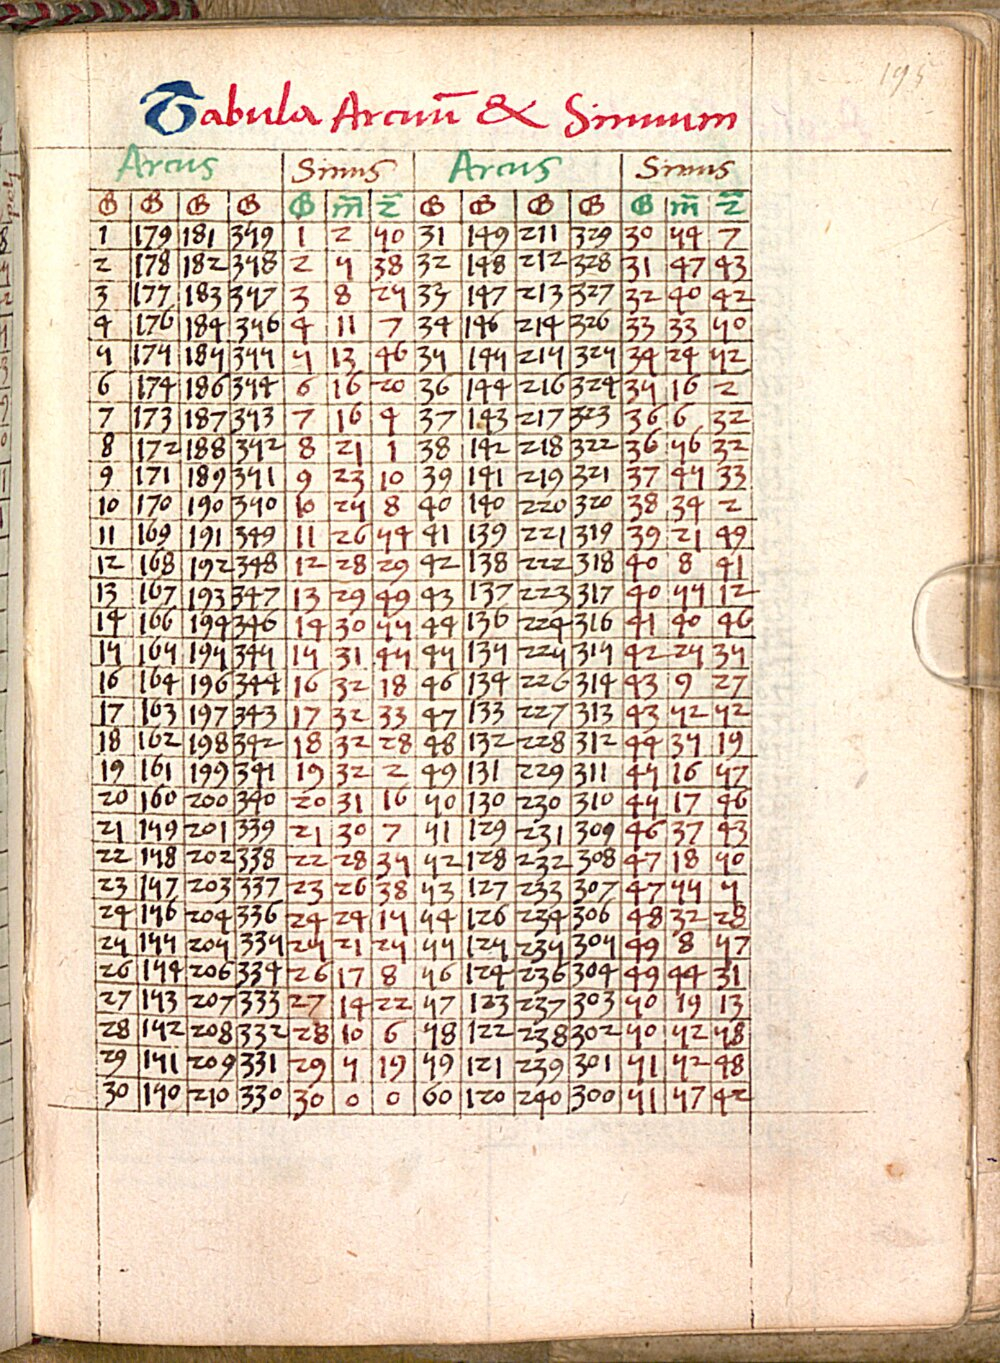 195
Tabula Arcuū & Sinuum
Arcus Sinus Arcus Sinus
G G G G G m̄ z̄ G G G G G m̄ z̄
1 179 181 359 1 2 50 31 149 211 329 30 54 7
2 178 182 358 2 5 38 32 148 212 328 31 47 43
3 177 183 357 3 8 25 33 147 213 327 32 40 42
4 176 184 356 4 11 7 34 146 214 326 33 33 50
5 175 185 355 5 13 46 35 145 215 325 34 24 52
6 174 186 354 6 16 20 36 144 216 324 35 16 2
7 173 187 353 7 16 4 37 143 217 323 36 6 32
8 172 188 352 8 21 1 38 142 218 322 36 56 32
9 171 189 351 9 23 10 39 141 219 321 37 45 33
10 170 190 350 10 25 8 40 140 220 320 38 34 2
11 169 191 349 11 26 54 41 139 221 319 39 21 49
12 168 192 348 12 28 29 42 138 222 318 40 8 41
13 167 193 347 13 29 49 43 137 223 317 40 55 12
14 166 194 346 14 30 55 44 136 224 316 41 40 46
15 165 195 345 15 31 45 45 135 225 315 42 25 35
16 164 196 344 16 32 18 46 134 226 314 43 9 27
17 163 197 343 17 32 33 47 133 227 313 43 52 52
18 162 198 342 18 32 28 48 132 228 312 44 35 19
19 161 199 341 19 32 2 49 131 229 311 45 16 57
20 160 200 340 20 31 16 50 130 230 310 45 17 46
21 159 201 339 21 30 7 51 129 231 309 46 37 43
22 158 202 338 22 28 35 52 128 232 308 47 18 50
23 157 203 337 23 26 38 53 127 233 307 47 55 5
24 156 204 336 24 24 15 54 126 234 306 48 32 28
25 155 205 335 25 21 25 55 125 235 305 49 8 57
26 154 206 334 26 17 8 56 124 236 304 49 44 31
27 153 207 333 27 14 22 57 123 237 303 50 19 13
28 152 208 332 28 10 6 58 122 238 302 50 52 58
29 151 209 331 29 5 19 59 121 239 301 51 52 48
30 150 210 330 30 0 0 60 120 240 300 51 57 42